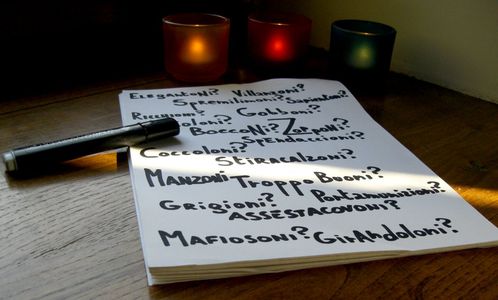 Elegantoni? Villanzoni?
Spremilimoni? Sapientoni?
Bocconi? Zopponi?
Spendaccioni?
Coccoloni?
Stiracalzoni?
Manzoni? Troppo Buoni?
Grigioni? Portamunizioni?
ASSESTACOVONI?
Mafiosoni? Girandoloni?